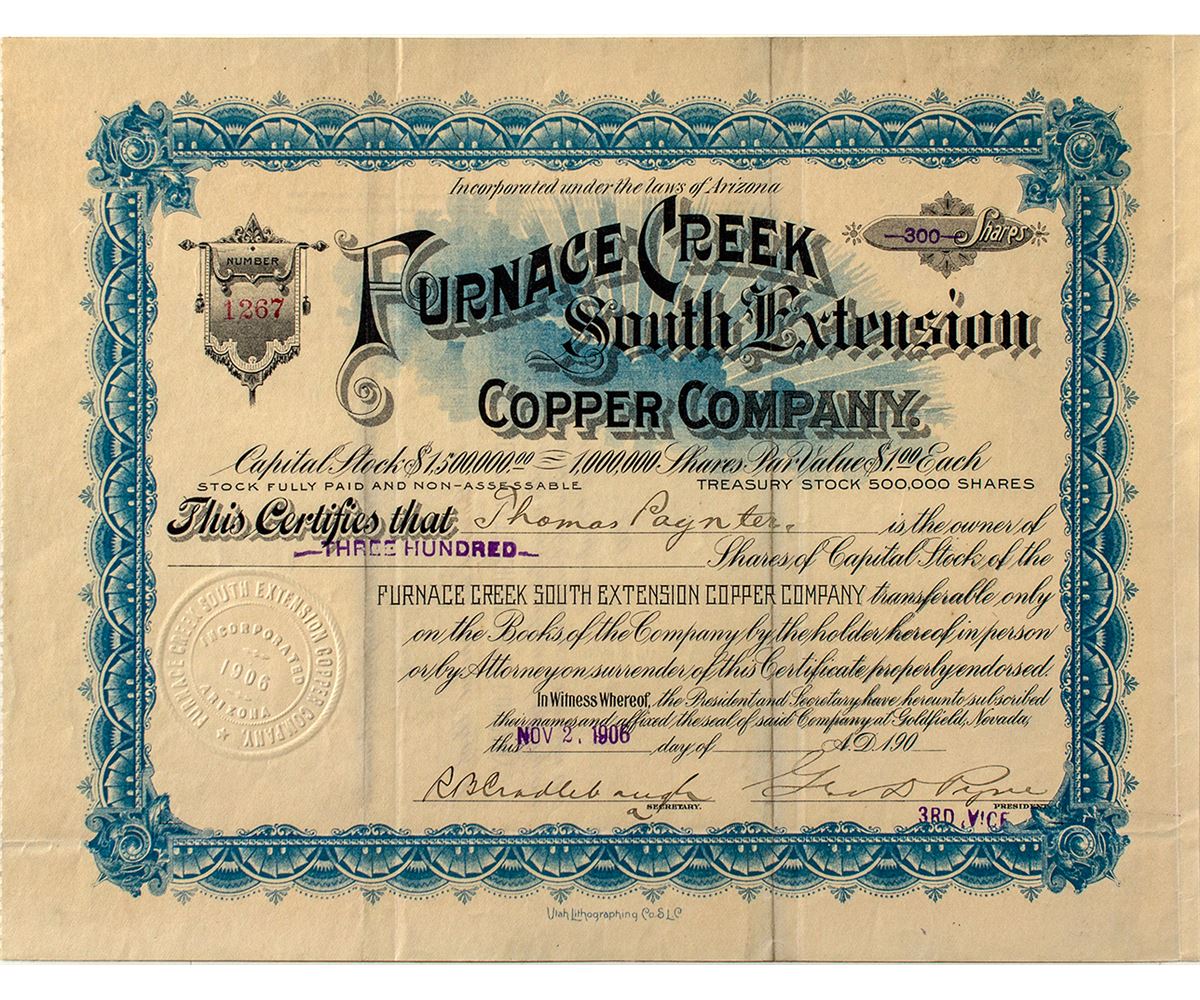 Incorporated under the laws of Arizona
NUMBER
1267
300 Shares
FURNACE CREEK
South Extension
COPPER COMPANY.
Capital Stock $1,500,000.00 = 1,000,000 Shares Par Value $1.00 Each
STOCK FULLY PAID AND NON-ASSESSABLE TREASURY STOCK 500,000 SHARES
This Certifies that Thomas Paynter. is the owner of
THREE HUNDRED Shares of Capital Stock of the
FURNACE CREEK SOUTH EXTENSION COPPER COMPANY transferable only
on the Books of the Company by the holder hereof in person
or by Attorney on surrender of this Certificate properly endorsed.
In Witness Whereof, the President and Secretary have hereunto subscribed
their names and affixed the seal of said Company at Goldfield, Nevada,
this NOV 2, 1906 day of A.D. 190
FURNACE CREEK SOUTH EXTENSION COPPER COMPANY.
INCORPORATED
1906
ARIZONA
R B Cradlebaugh Geo D Pyne
SECRETARY. PRESIDENT
3RD VICE
Utah Lithographing Co. S L C